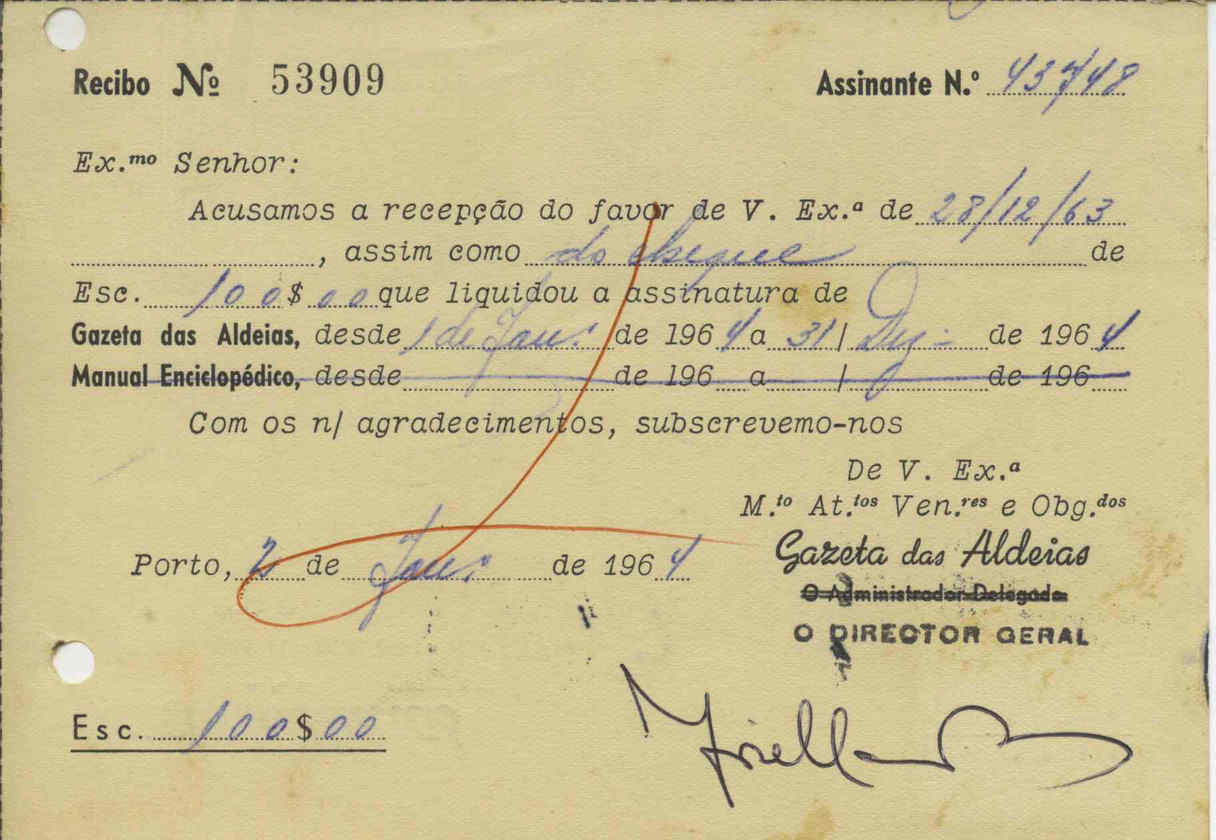 Recibo Nº 53909 Assinante N.º 43748
Ex.mo Senhor:
Acusamos a recepção do favor de V. Ex.ª de 28/12/63
, assim como do cheque de
Esc. 100$00 que liquidou a assinatura de
Gazeta das Aldeias, desde 1 de Jan. de 1964 a 31 / Dez. de 1964
Manual Enciclopédico, desde de 196 a / de 196
Com os n/ agradecimentos, subscrevemo-nos
De V. Ex.ª
M.to At.tos Ven.res e Obg.dos
Gazeta das Aldeias
Porto, 2 de Jan. de 1964
O Administrador-Delegado
O DIRECTOR GERAL
Esc. 100$00